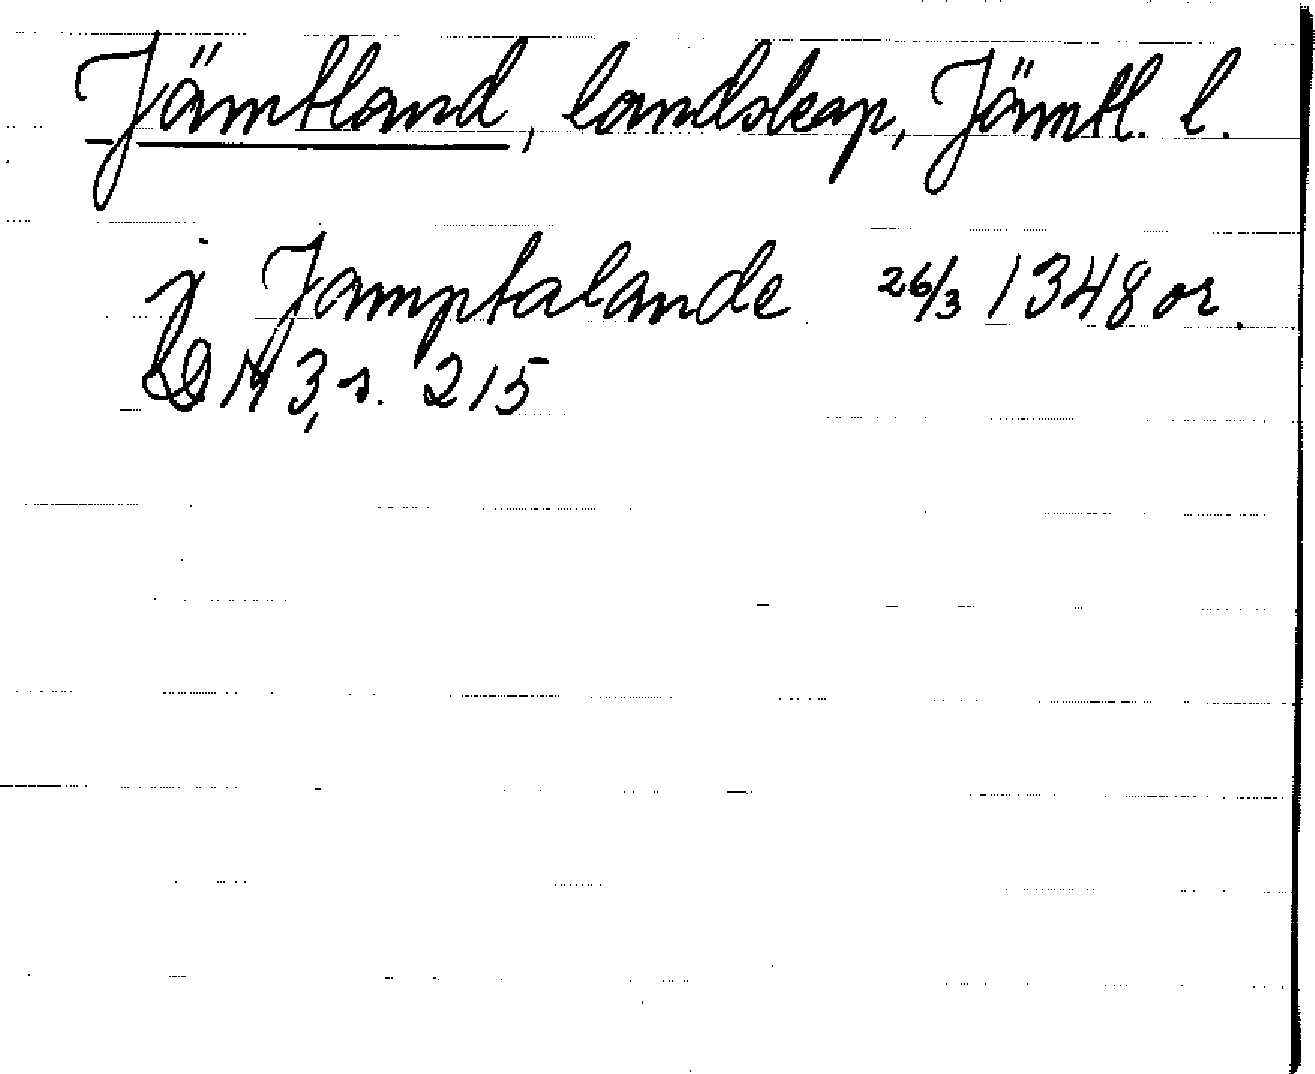 Jämtland, landskap, Jämtl. l.
j Jamptalande 26/3 1348 or.
DN 3, s. 215